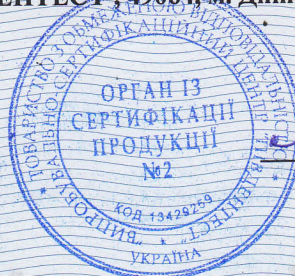 ЕНТЕСТ", 49051, м. Дніп
* ТОВАРИСТВО З ОБМЕЖЕНОЮ ВІДПОВІДАЛЬНІСТЮ *
"ВИПРОБУВАЛЬНО-СЕРТИФІКАЦІЙНИЙ ЦЕНТР "ПІВДЕНТЕСТ"
ОРГАН ІЗ
СЕРТИФІКАЦІЇ
ПРОДУКЦІЇ
№2
КОД 13429259
УКРАЇНА